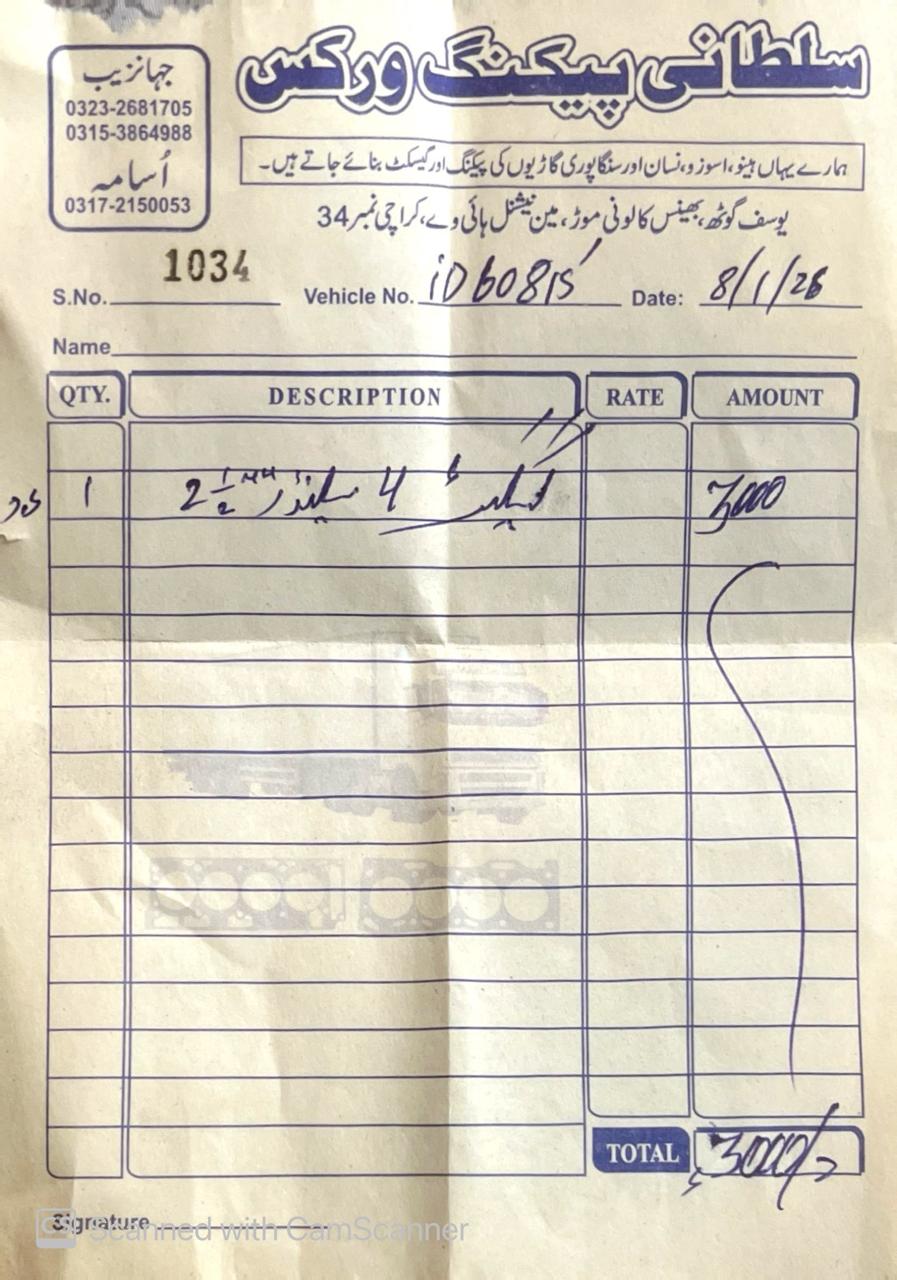 سلطانی پیکنگ ورکس
جہانزیب
0323-2681705
0315-3864988
اُسامہ
0317-2150053
ہمارے یہاں ہینو، اسوزو، نسان اور سنگاپوری گاڑیوں کی پیکنگ اور گیسکٹ بنائے جاتے ہیں۔
یوسف گوٹھ، بھینس کالونی موڑ، مین نیشنل ہائی وے، کراچی نمبر 34
S.No. 1034 Vehicle No. Date: 8/1/26
Name
QTY. DESCRIPTION RATE AMOUNT
1 4 سلینڈر 2 1/2 3000
TOTAL 3000/-
Signature
CS Scanned with CamScanner